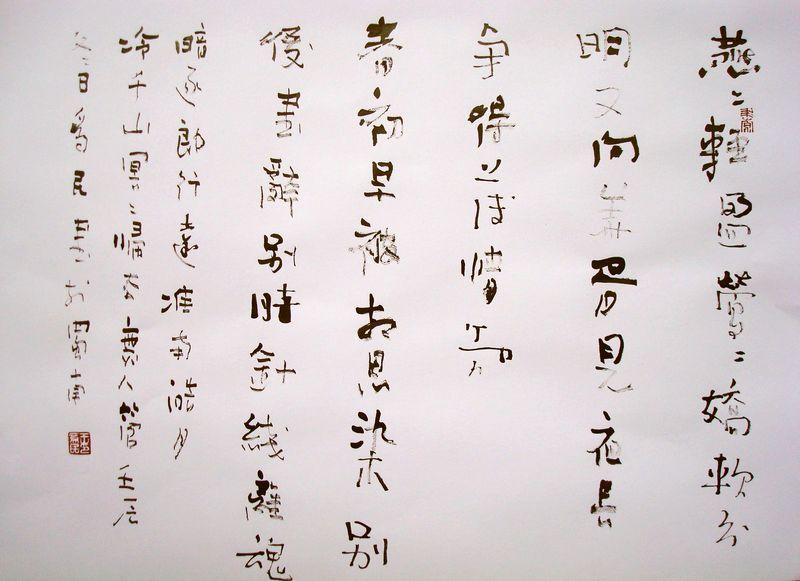 燕〻輕盈鶯〻嬌軟分
明又向華胥見夜長
争得薄情知
春初早被相思染别
後書辭别時針綫離魂
暗逐郎行遠淮南皓月
冷千山冥〻歸去無人管
日爲民書於南